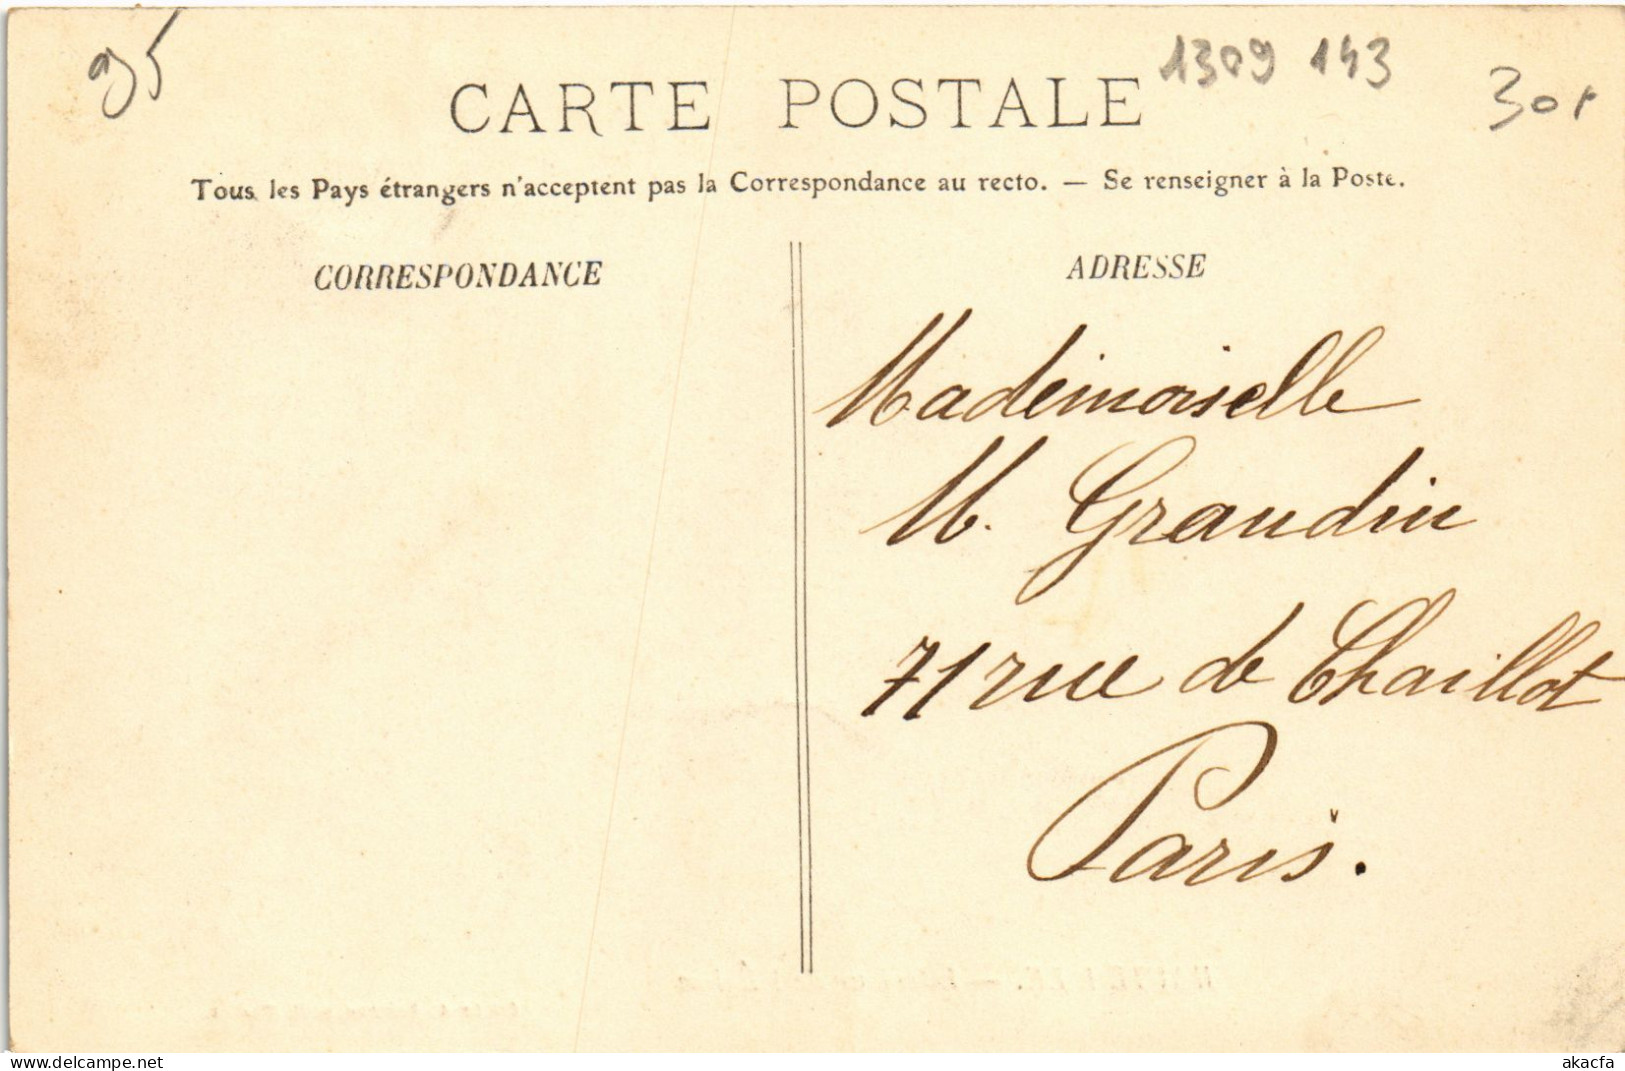 95
1309 143
CARTE POSTALE
Tous les Pays étrangers n'acceptent pas la Correspondance au recto. — Se renseigner à la Poste.
CORRESPONDANCE
ADRESSE
Mademoiselle
M. Grandin
71 rue de Chaillot
Paris.
akacfa